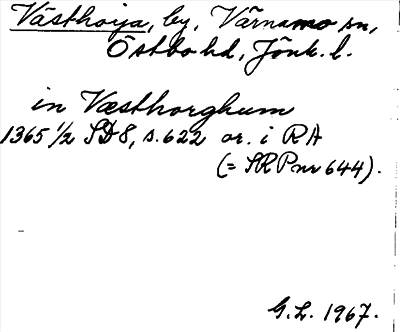 Västhorja, by, Värnamo sn,
Östbo hd, Jönk. l.
in Væsthorghum
1365 1/2 SD8, s. 622 or. i RA
(= SRP nr 644).
G.L. 1967.